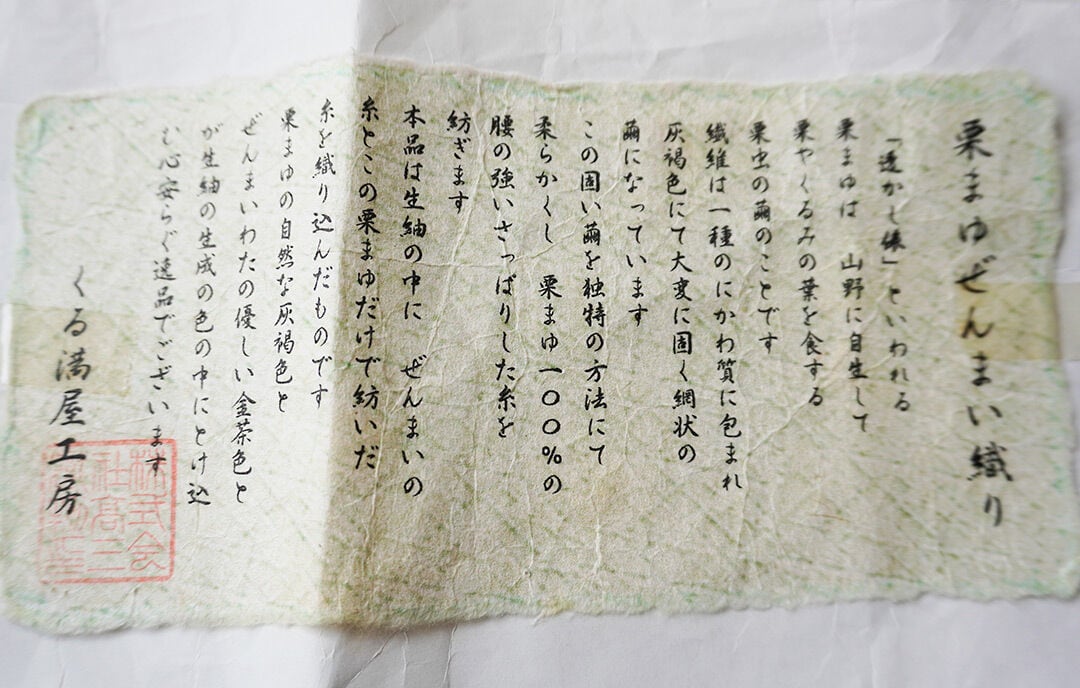 栗まゆぜんまい織り
「透かし俵」といわれる
栗まゆは 山野に自生して
栗やくるみの葉を食する
栗虫の繭のことです
繊維は一種のにかわ質に包まれ
灰褐色にて大変に固く網状の
繭になっています
この固い繭を独特の方法にて
柔らかくし 栗まゆ一〇〇%の
腰の強いさっぱりした糸を
紡ぎます
本品は生紬の中に ぜんまいの
糸とこの栗まゆだけで紡いだ
糸を織り込んだものです
栗まゆの自然な灰褐色と
ぜんまいわたの優しい金茶色と
が生紬の生成の色の中にとけ込
む心安らぐ逸品でございます
くる満屋工房
株式会
社高三